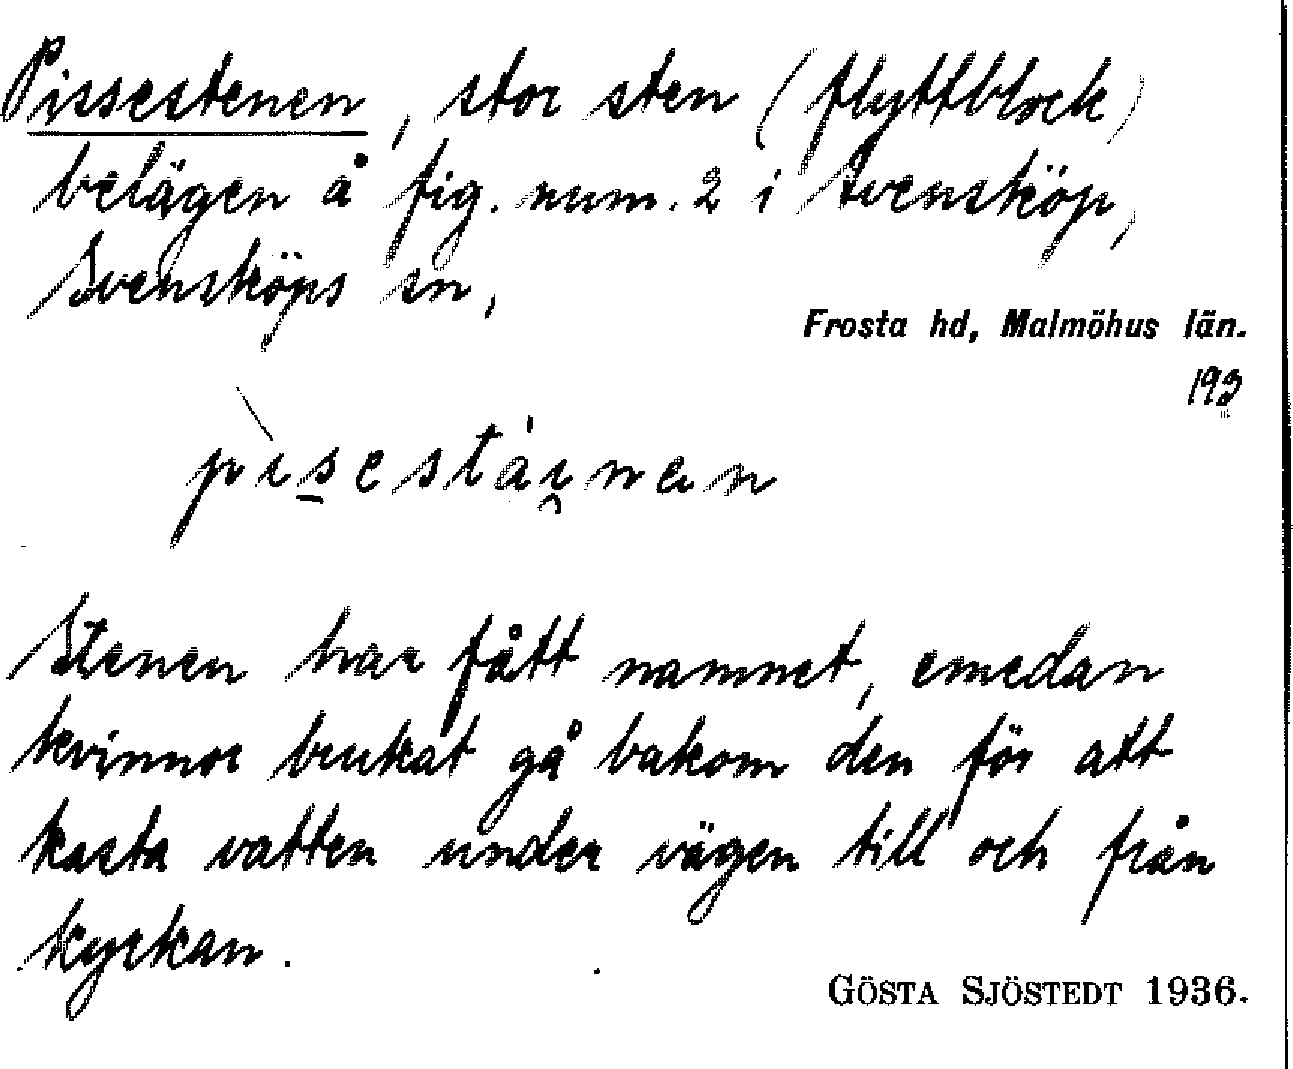 Pissestenen, stor sten (flyttblock)
belägen å fig. num. 2 i Svensköp,
Svensköps sn,
Frosta hd, Malmöhus län.
193
pisestái̯nen
Stenen har fått namnet, emedan
kvinnor brukat gå bakom den för att
kasta vatten under vägen till och från
kyrkan.
GÖSTA SJÖSTEDT 1936.